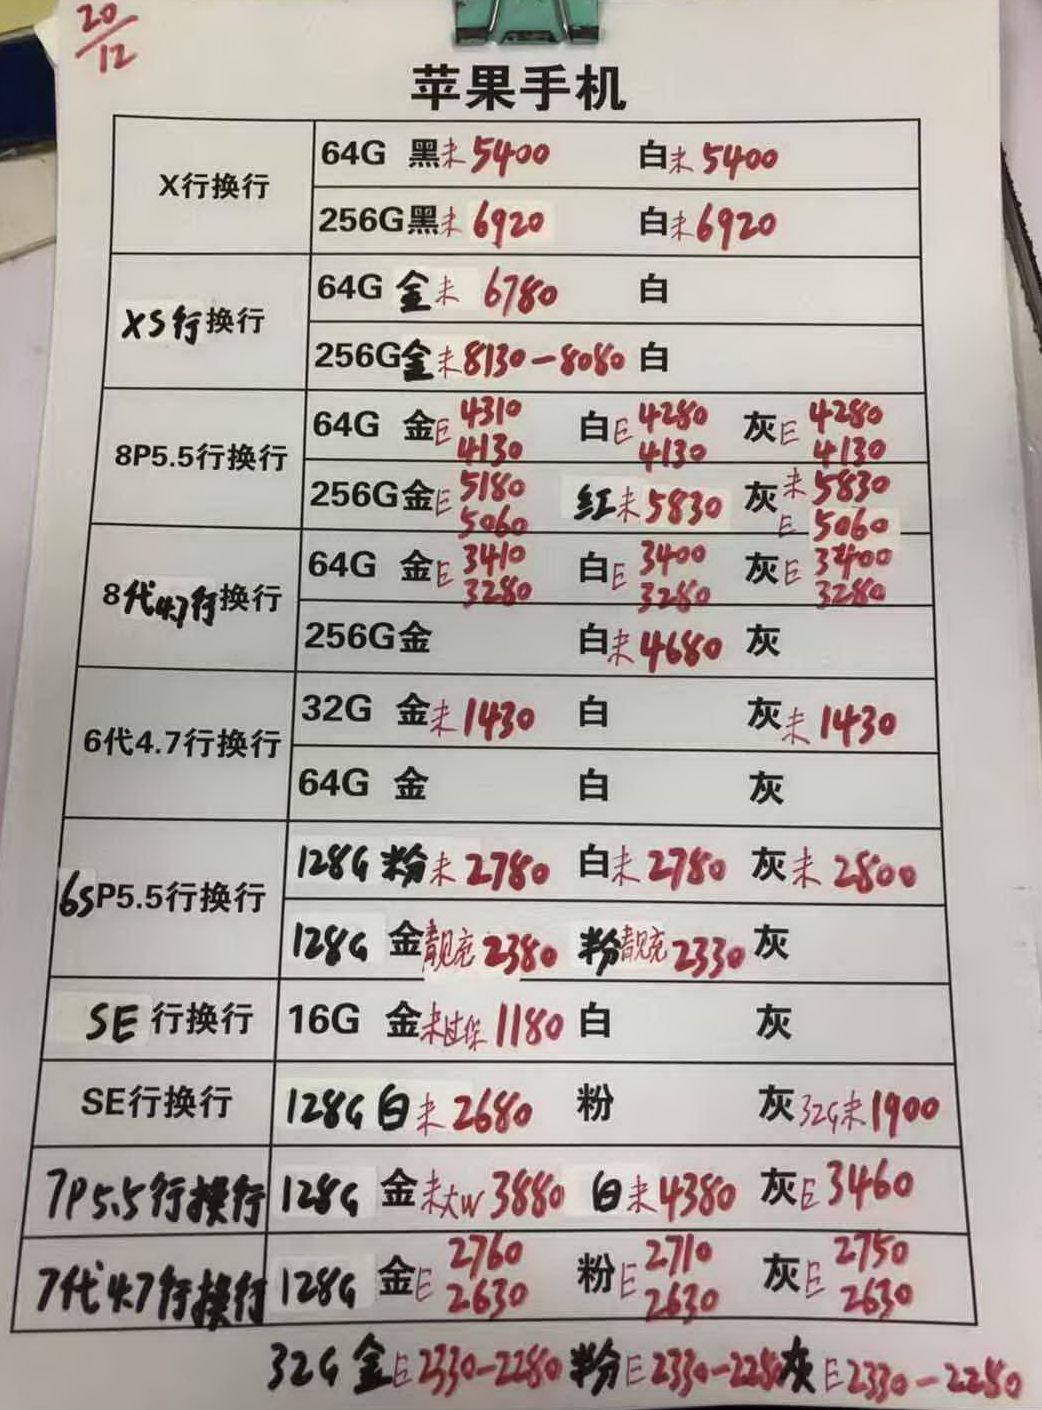 20/12
苹果手机
X行换行
64G 黑未5400 白未5400
256G黑未6920 白未6920
XS行换行
64G 金未 6780 白
256G金未8130-8080 白
8P5.5行换行
64G 金E 4310 4130 白E 4280 4130 灰E 4280 4130
256G金E 5180 5060 红未5830 灰未5830 E 5060
8代4.7行换行
64G 金E 3410 3280 白E 3400 3280 灰E 3400 3280
256G金 白未4680 灰
6代4.7行换行
32G 金未1430 白 灰未1430
64G 金 白 灰
6SP5.5行换行
128G 粉未2780 白未2780 灰未2800
128G 金靓充2380 粉靓充2330 灰
SE行换行
16G 金未过保1180 白 灰
SE行换行
128G 白未2680 粉 灰32G未1900
7P5.5行换行
128G 金未大W3880 白未4380 灰E3460
7代4.7行换行
128G 金E 2760 2630 粉E 2710 2630 灰E 2750 2630
32G 金E2330-2280 粉E2330-2280 灰E2330-2280